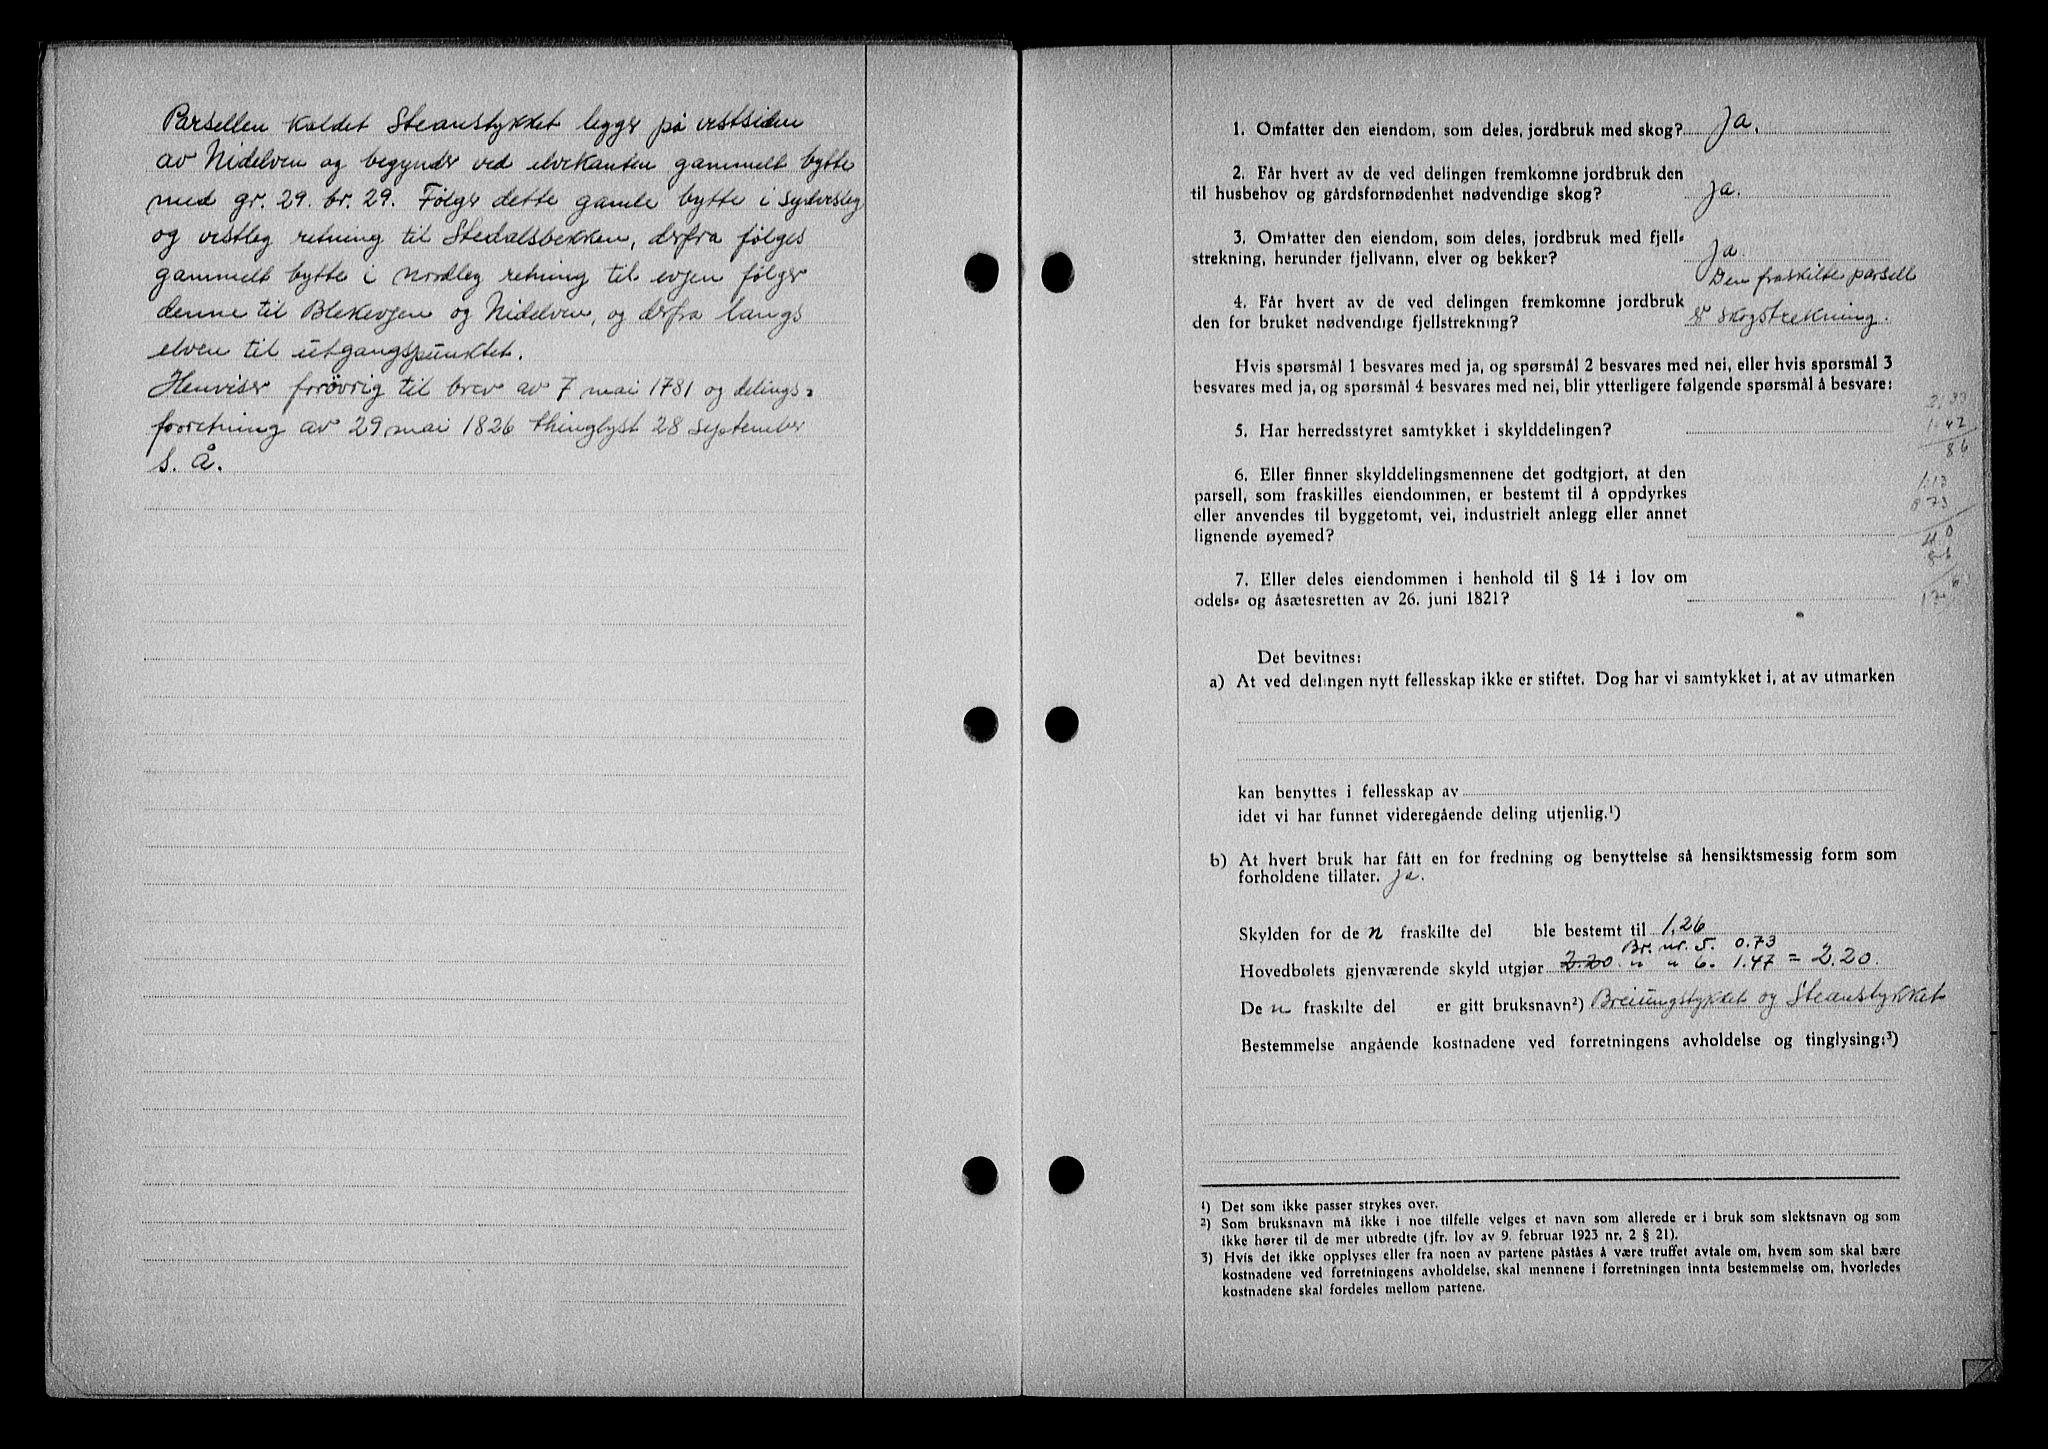 Parsellen kaldet Steanstykket legger på vestsiden
av Nidelven og begynder ved elvekanten gammelt bytte
med gr. 29. br. 29. Følger dette gamle bytte i sydvestleg
og vestleg retning til Stedalsbekken, derfra følges
gammelt bytte i nordleg retning til evjen følger
denne til Blekevjen og Nidelven, og derfra langs
elven til utgangspunktet.
Henviser forøvrig til brev av 7 mai 1781 og delings-
forretning av 29 mai 1826 thinglyst 28 september
s. å.
1. Omfatter den eiendom, som deles, jordbruk med skog? Ja.
2. Får hvert av de ved delingen fremkomne jordbruk den
til husbehov og gårdsfornødenhet nødvendige skog? Ja.
3. Omfatter den eiendom, som deles, jordbruk med fjell-
strekning, herunder fjellvann, elver og bekker? Ja.
Den fraskilte parsell
4. Får hvert av de ved delingen fremkomne jordbruk
den for bruket nødvendige fjellstrekning? er skogstrekning.
Hvis spørsmål 1 besvares med ja, og spørsmål 2 besvares med nei, eller hvis spørsmål 3
besvares med ja, og spørsmål 4 besvares med nei, blir ytterligere følgende spørsmål å besvare:
5. Har herredsstyret samtykket i skylddelingen?
6. Eller finner skylddelingsmennene det godtgjort, at den
parsell, som fraskilles eiendommen, er bestemt til å oppdyrkes
eller anvendes til byggetomt, vei, industrielt anlegg eller annet
lignende øyemed?
7. Eller deles eiendommen i henhold til § 14 i lov om
odels- og åsætesretten av 26. juni 1821?
Det bevitnes:
a) At ved delingen nytt fellesskap ikke er stiftet. Dog har vi samtykket i, at av utmarken
kan benyttes i fellesskap av
idet vi har funnet videregående deling utjenlig.¹)
b) At hvert bruk har fått en for fredning og benyttelse så hensiktsmessig form som
forholdene tillater. Ja.
Skylden for de n fraskilte del ble bestemt til 1,26
Br. nr. 5. 0.73
Hovedbølets gjenværende skyld utgjør 2.20 " " 6. 1.47 = 2.20.
De n fraskilte del er gitt bruksnavn²) Breiungstykket og Steanstykket
Bestemmelse angående kostnadene ved forretningens avholdelse og tinglysing:³)
1) Det som ikke passer strykes over.
2) Som bruksnavn må ikke i noe tilfelle velges et navn som allerede er i bruk som slektsnavn og som
ikke hører til de mer utbredte (jfr. lov av 9. februar 1923 nr. 2 § 21).
3) Hvis det ikke opplyses eller fra noen av partene påståes å være truffet avtale om, hvem som skal bære
kostnadene ved forretningens avholdelse, skal mennene i forretningen innta bestemmelse om, hvorledes
kostnadene skal fordeles mellom partene.